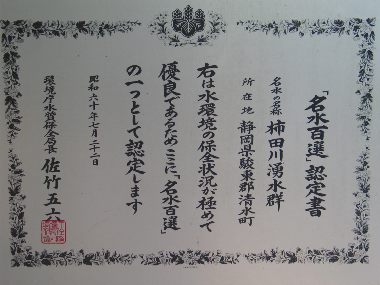 「名水百選」認定書
名水の名称 柿田川湧水群
所在地 静岡県駿東郡清水町
右は水環境の保全状況が極めて
優良であるためここに、「名水百選」
の一つとして認定します
昭和六十年七月二十二日
環境庁水質保全局長 佐竹五六